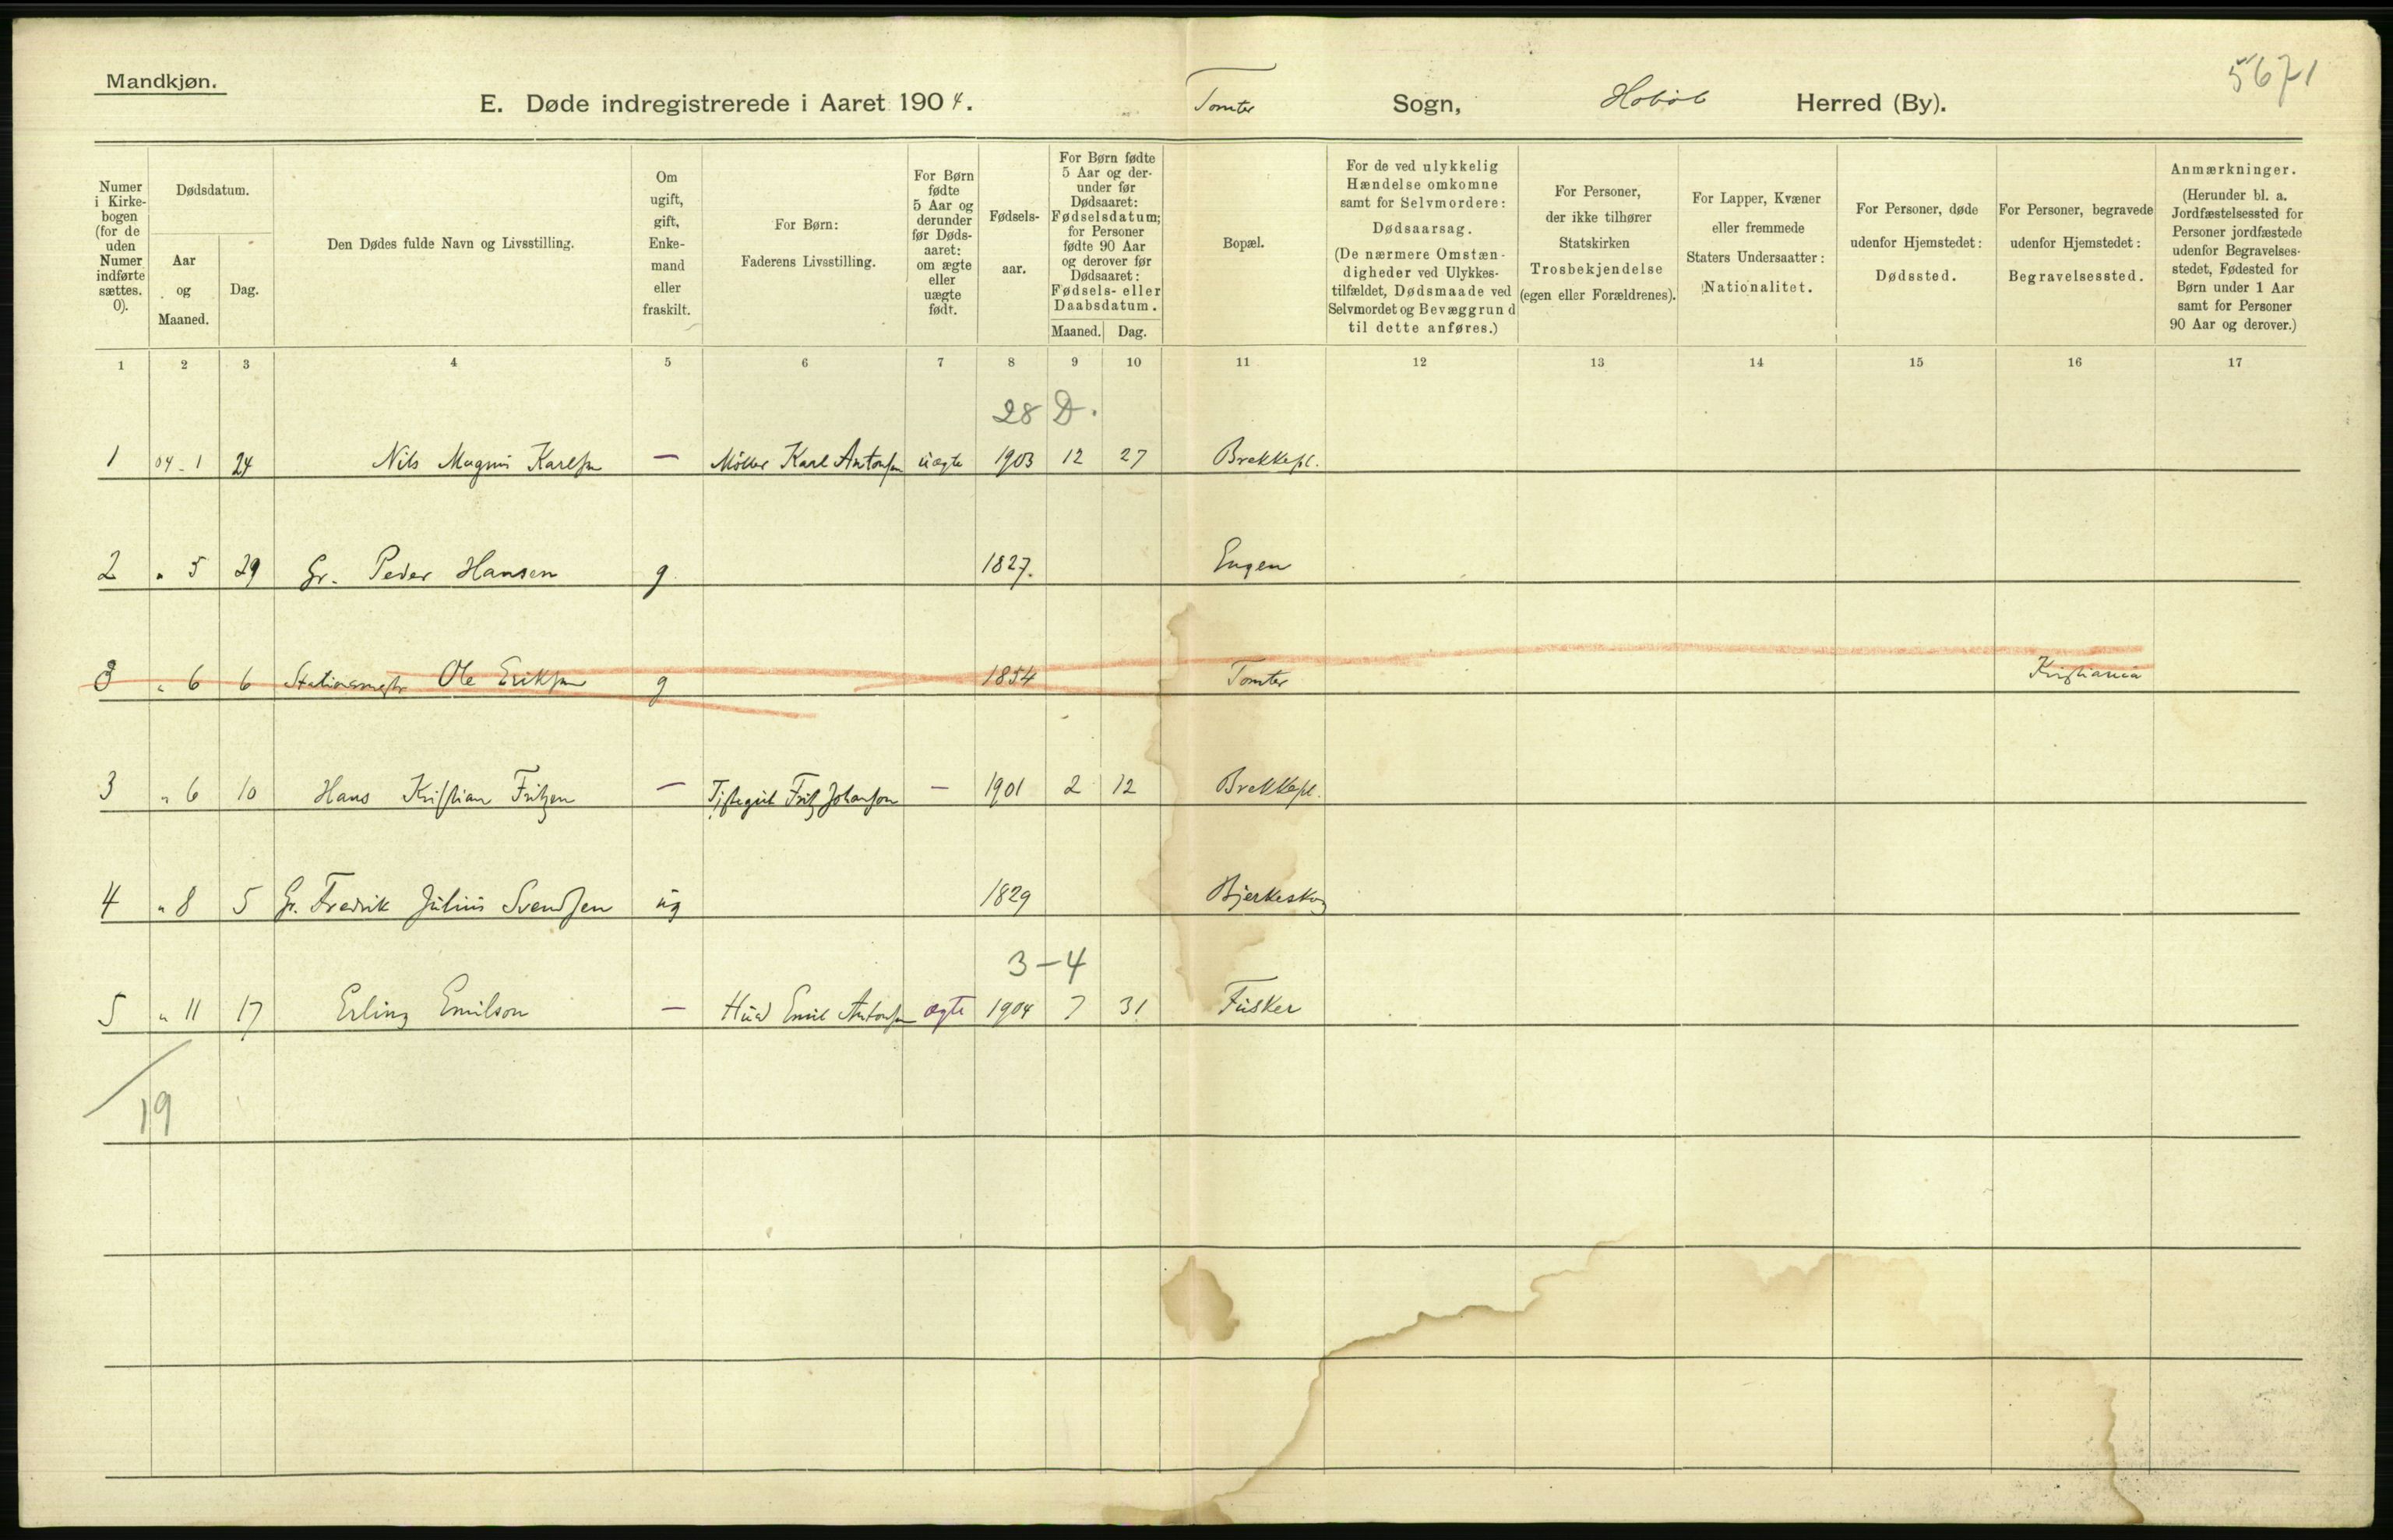 Mandkjøn.
5671
E. Døde indregistrerede i Aaret 1904. Tomter Sogn, Hobøl Herred (By).
Numer i Kirkebogen (for de uden Numer indførte sættes. 0).
Dødsdatum.
Aar og Maaned.
Dag.
Den Dødes fulde Navn og Livsstilling.
Om ugift, gift, Enkemand eller fraskilt.
For Børn: Faderens Livsstilling.
For Børn fødte 5 Aar og derunder før Dødsaaret: om ægte eller uægte født.
Fødselsaar.
For Børn fødte 5 Aar og derunder før Dødsaaret: Fødselsdatum; for Personer fødte 90 Aar og derover før Dødsaaret: Fødsels- eller Daabsdatum.
Maaned. Dag.
Bopæl.
For de ved ulykkelig Hændelse omkomne samt for Selvmordere: Dødsaarsag. (De nærmere Omstændigheder ved Ulykkestilfældet, Dødsmaade ved Selvmordet og Bevæggrund til dette anføres.)
For Personer, der ikke tilhører Statskirken Trosbekjendelse (egen eller Forældrenes).
For Lapper, Kvæner eller fremmede Staters Undersaatter: Nationalitet.
For Personer, døde udenfor Hjemstedet: Dødssted.
For Personer, begravede udenfor Hjemstedet: Begravelsessted.
Anmærkninger. (Herunder bl. a. Jordfæstelsessted for Personer jordfæstede udenfor Begravelsesstedet, Fødested for Børn under 1 Aar samt for Personer 90 Aar og derover.)
1 2 3 4 5 6 7 8 9 10 11 12 13 14 15 16 17
28 D.
1 04-1 24 Nils Magnus Karlsen — Møller Karl Antonsen uægte 1903 12 27 Brekkepl.
2 " 5 29 Gr. Peder Hansen g 1827. Engen
3 " 6 6 Stationsmester Ole Eriksen g 1854 Tomter Kristiania
3 " 6 10 Hans Kristian Fritzen — Fritz Johanson — 1901 2 12 Brekkepl.
4 " 8 5 Gr. Fredrik Julius Svendsen ug 1829 Bjerkeskog
3-4
5 " 11 17 Erling Emilson — Husm Emil Antonsen ægte 1904 7 31 Fusker
19